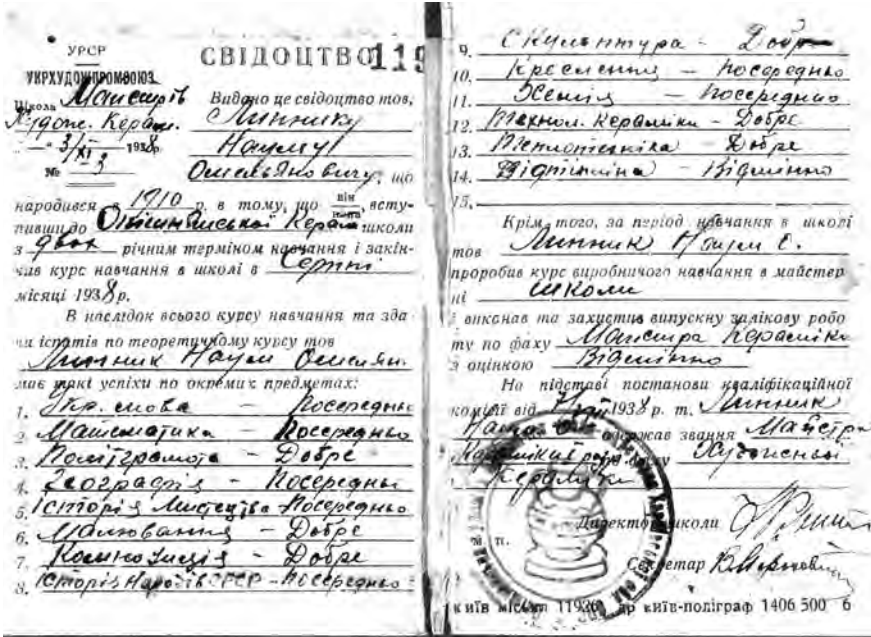 УРСР
УКРХУДОЖПРОМСОЮЗ
СВІДОЦТВО 119
Школа Майстрів
Худож. Керам.
"—" 3/XI 1938 р.
№ 3
Видано це свідоцтво тов.
Линнику
Науму
Омеляновичу, що
народився в 1910 р. в тому, що він вступивши до
Опішнянської Керам школи
з двох річним терміном навчання і закін-
чив курс навчання в школі в Серпні
місяці 1938 р.
В наслідок всього курсу навчання та зда-
чи іспитів по теоретичному курсу тов
Линник Наум Омелян.
має такі успіхи по окремих предметах:
1. Укр. мова — Посередньо
2. Математика — Посередньо
3. Політграмота — Добре
4. Географія — Посередньо
5. Історія Мистецтва - Посередньо
6. Малювання — Добре
7. Композиція — Добре
8. Історія Народів СРСР - Посередньо
9. Скульптура - Добре
10. Креслення — Посередньо
11. Хемія — Посередньо
12. Технол. Кераміки - Добре
13. Теплотехніка — Добре
14. — Відмінно
15.
Крім того, за період навчання в школі
тов Линник Наум О.
проробив курс виробничого навчання в майстер
ні школи
і виконав та захистив випускну залікову робо
ту по фаху Майстра Кераміка
з оцінкою Відмінно
На підставі постанови кваліфікаційної
комісії від 1938 р. т. Линник
Наум одержав звання Майстра
Художньої
Кераміки
Директор школи
м. п.
Секретар
київ-поліграф 1406 500 6